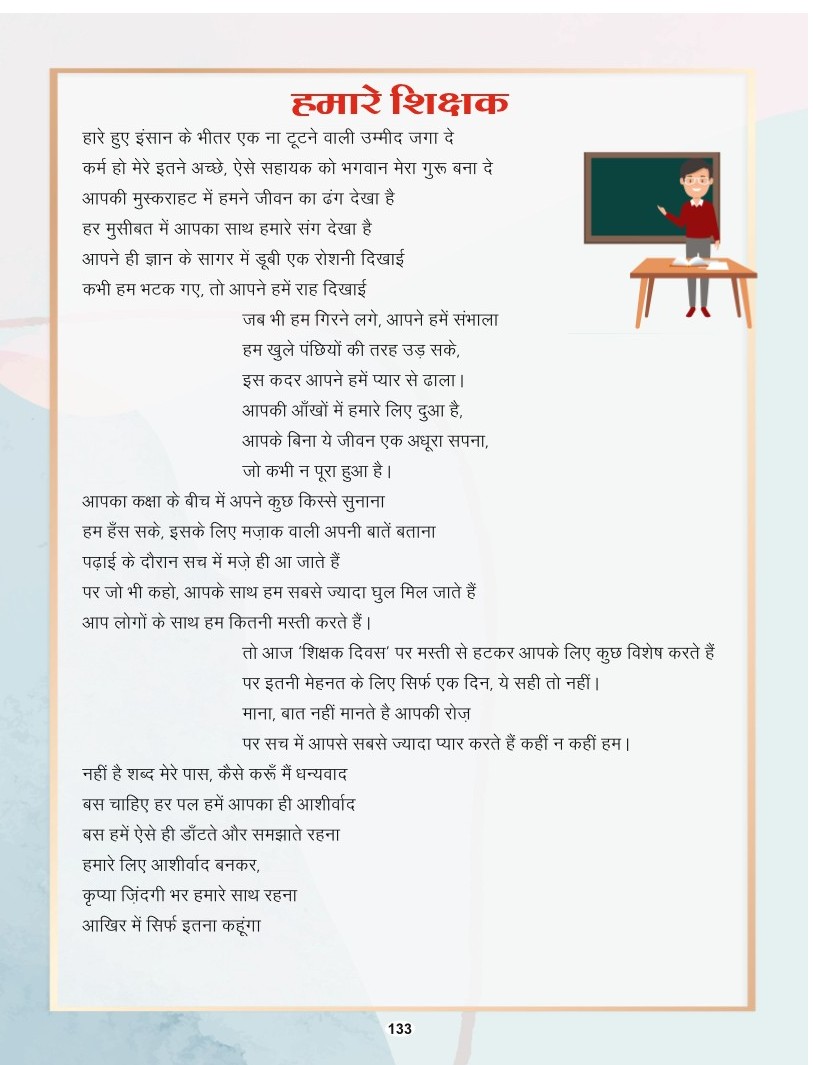 हमारे शिक्षक
हारे हुए इंसान के भीतर एक ना टूटने वाली उम्मीद जगा दे
कर्म हो मेरे इतने अच्छे, ऐसे सहायक को भगवान मेरा गुरू बना दे
आपकी मुस्कराहट में हमने जीवन का ढंग देखा है
हर मुसीबत में आपका साथ हमारे संग देखा है
आपने ही ज्ञान के सागर में डूबी एक रोशनी दिखाई
कभी हम भटक गए, तो आपने हमें राह दिखाई
जब भी हम गिरने लगे, आपने हमें संभाला
हम खुले पंछियों की तरह उड़ सके,
इस कदर आपने हमें प्यार से ढाला।
आपकी आँखों में हमारे लिए दुआ है,
आपके बिना ये जीवन एक अधूरा सपना,
जो कभी न पूरा हुआ है।
आपका कक्षा के बीच में अपने कुछ किस्से सुनाना
हम हँस सके, इसके लिए मज़ाक वाली अपनी बातें बताना
पढ़ाई के दौरान सच में मज़े ही आ जाते हैं
पर जो भी कहो, आपके साथ हम सबसे ज्यादा घुल मिल जाते हैं
आप लोगों के साथ हम कितनी मस्ती करते हैं।
तो आज ‘शिक्षक दिवस’ पर मस्ती से हटकर आपके लिए कुछ विशेष करते हैं
पर इतनी मेहनत के लिए सिर्फ एक दिन, ये सही तो नहीं।
माना, बात नहीं मानते है आपकी रोज़
पर सच में आपसे सबसे ज्यादा प्यार करते हैं कहीं न कहीं हम।
नहीं है शब्द मेरे पास, कैसे करूँ मैं धन्यवाद
बस चाहिए हर पल हमें आपका ही आशीर्वाद
बस हमें ऐसे ही डाँटते और समझाते रहना
हमारे लिए आशीर्वाद बनकर,
कृप्या ज़िंदगी भर हमारे साथ रहना
आखिर में सिर्फ इतना कहूंगा
133